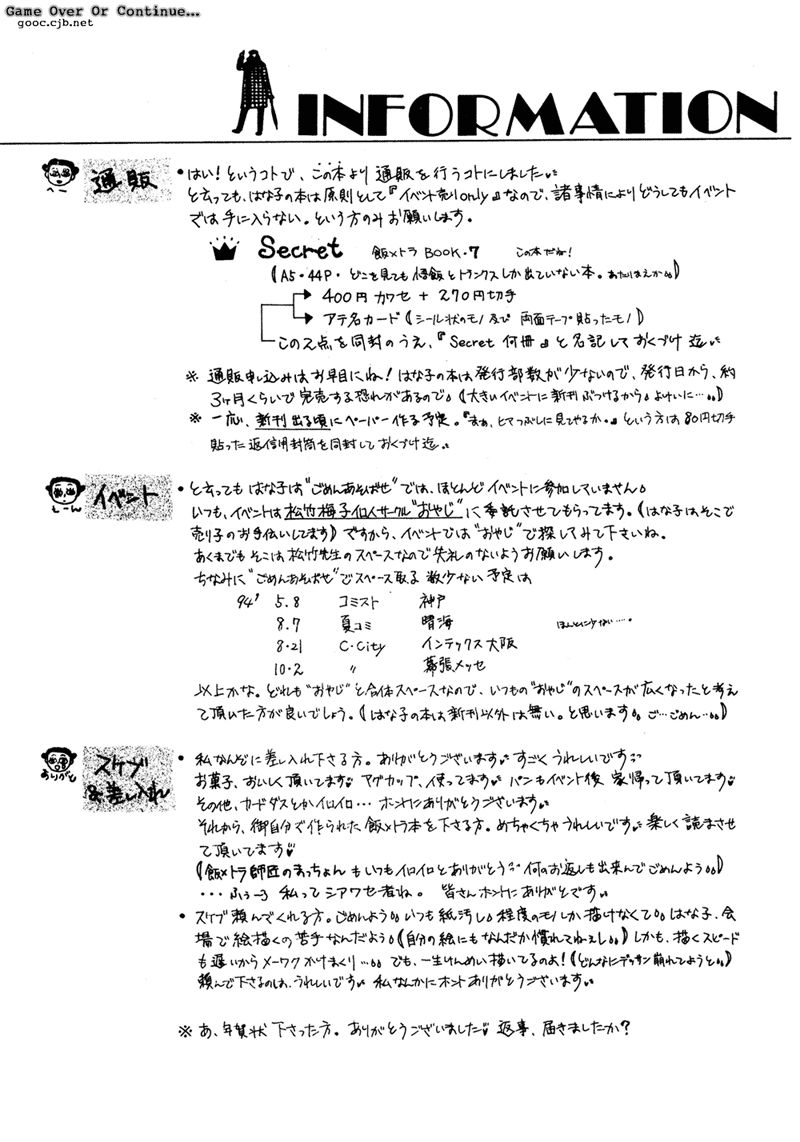 Game Over Or Continue...
gooc.cjb.net
INFORMATION
へー
通販
・はい!というコトで、この本より通販を行うコトにしました
と言っても、はな子の本は原則として『イベント売りonly』なので、諸事情によりどうしてもイベント
では手に入らない。という方のみお願いします。
Secret 飯×トラ BOOK・7 この本だね!
(A5・44P・どこを見ても悟飯とトランクスしか出ていない本。あたりまえか。。)
400円カワセ + 270円切手
アテ名カード(シール状のモノ及び両面テープ貼ったモノ)
この2点を同封のうえ、『Secret 何冊』と名記しておくづけ迄
※ 通販申し込みはお早目にね!はな子の本は発行部数が少ないので、発行日から、約
3ヶ月くらいで完売する恐れがあるので。(大きいイベントに新刊ぶつけるから。よけいに…。。)
※ 一応、新刊出る頃にペーパー作る予定。『まぁ、ヒマつぶしに見てやるか。』という方は80円切手
貼った返信用封筒を同封しておくづけ迄
しーん
イベント
・と言ってもはな子は"ごめんあそばせ"では、ほとんどイベントに参加していません。
いつも、イベントは松竹梅子個人サークル"おやじ"に委託させてもらってます。(はな子は、そこで
売り子のお手伝いしてます)ですから、イベントでは"おやじ"で探してみて下さいね。
あくまでもそこは松竹先生のスペースなので失礼のないようお願いします。
ちなみに"ごめんあそばせ"でスペース取る数少ない予定は
94' 5.8 コミスト 神戸
8.7 夏コミ 晴海 ほんとに少ない…。
8・21 C・City インテックス大阪
10・2 〃 幕張メッセ
以上かな。どれも"おやじ"と合体スペースなので、いつもの"おやじ"のスペースが広くなったと考え
て頂いた方が良いでしょう。(はな子の本は新刊以外は無い。と思います。。ご…ごめん…。。)
ありがと
スケブ
&差し入れ
・私なんぞに差し入れ下さる方。ありがとうございます すごくうれしいです
お菓子、おいしく頂いてます マグカップ、使ってます パンもイベント後 家帰って頂いてます
その他、カードダスとかイロイロ…ホントにありがとうございます
それから、御自分で作られた飯×トラ本を下さる方。めちゃくちゃうれしいです 楽しく読まさせ
て頂いてます
(飯×トラ師匠のまっちょんもいつもイロイロとありがとう 何のお返しも出来んでごめんよう。。)
・・・ふぅーっ 私ってシアワセ者ね。 皆さんホントにありがとです
・スケブ頼んでくれる方。ごめんよう。。いつも紙汚し。程度のモノしか描けなくて。。はな子、会
場で絵描くの苦手なんだよう。。(自分の絵にもなんだか慣れてねぇし。。)しかも、描くスピード
も遅いからメーワクかけまくり…。。でも、一生けんめい描いてるのよ!(どんなにデッサン崩れてようと。。)
頼んで下さるのは、うれしいです 私なんかにホントありがとうございます
※ あ、年賀状下さった方。ありがとうございました 返事、届きましたか?